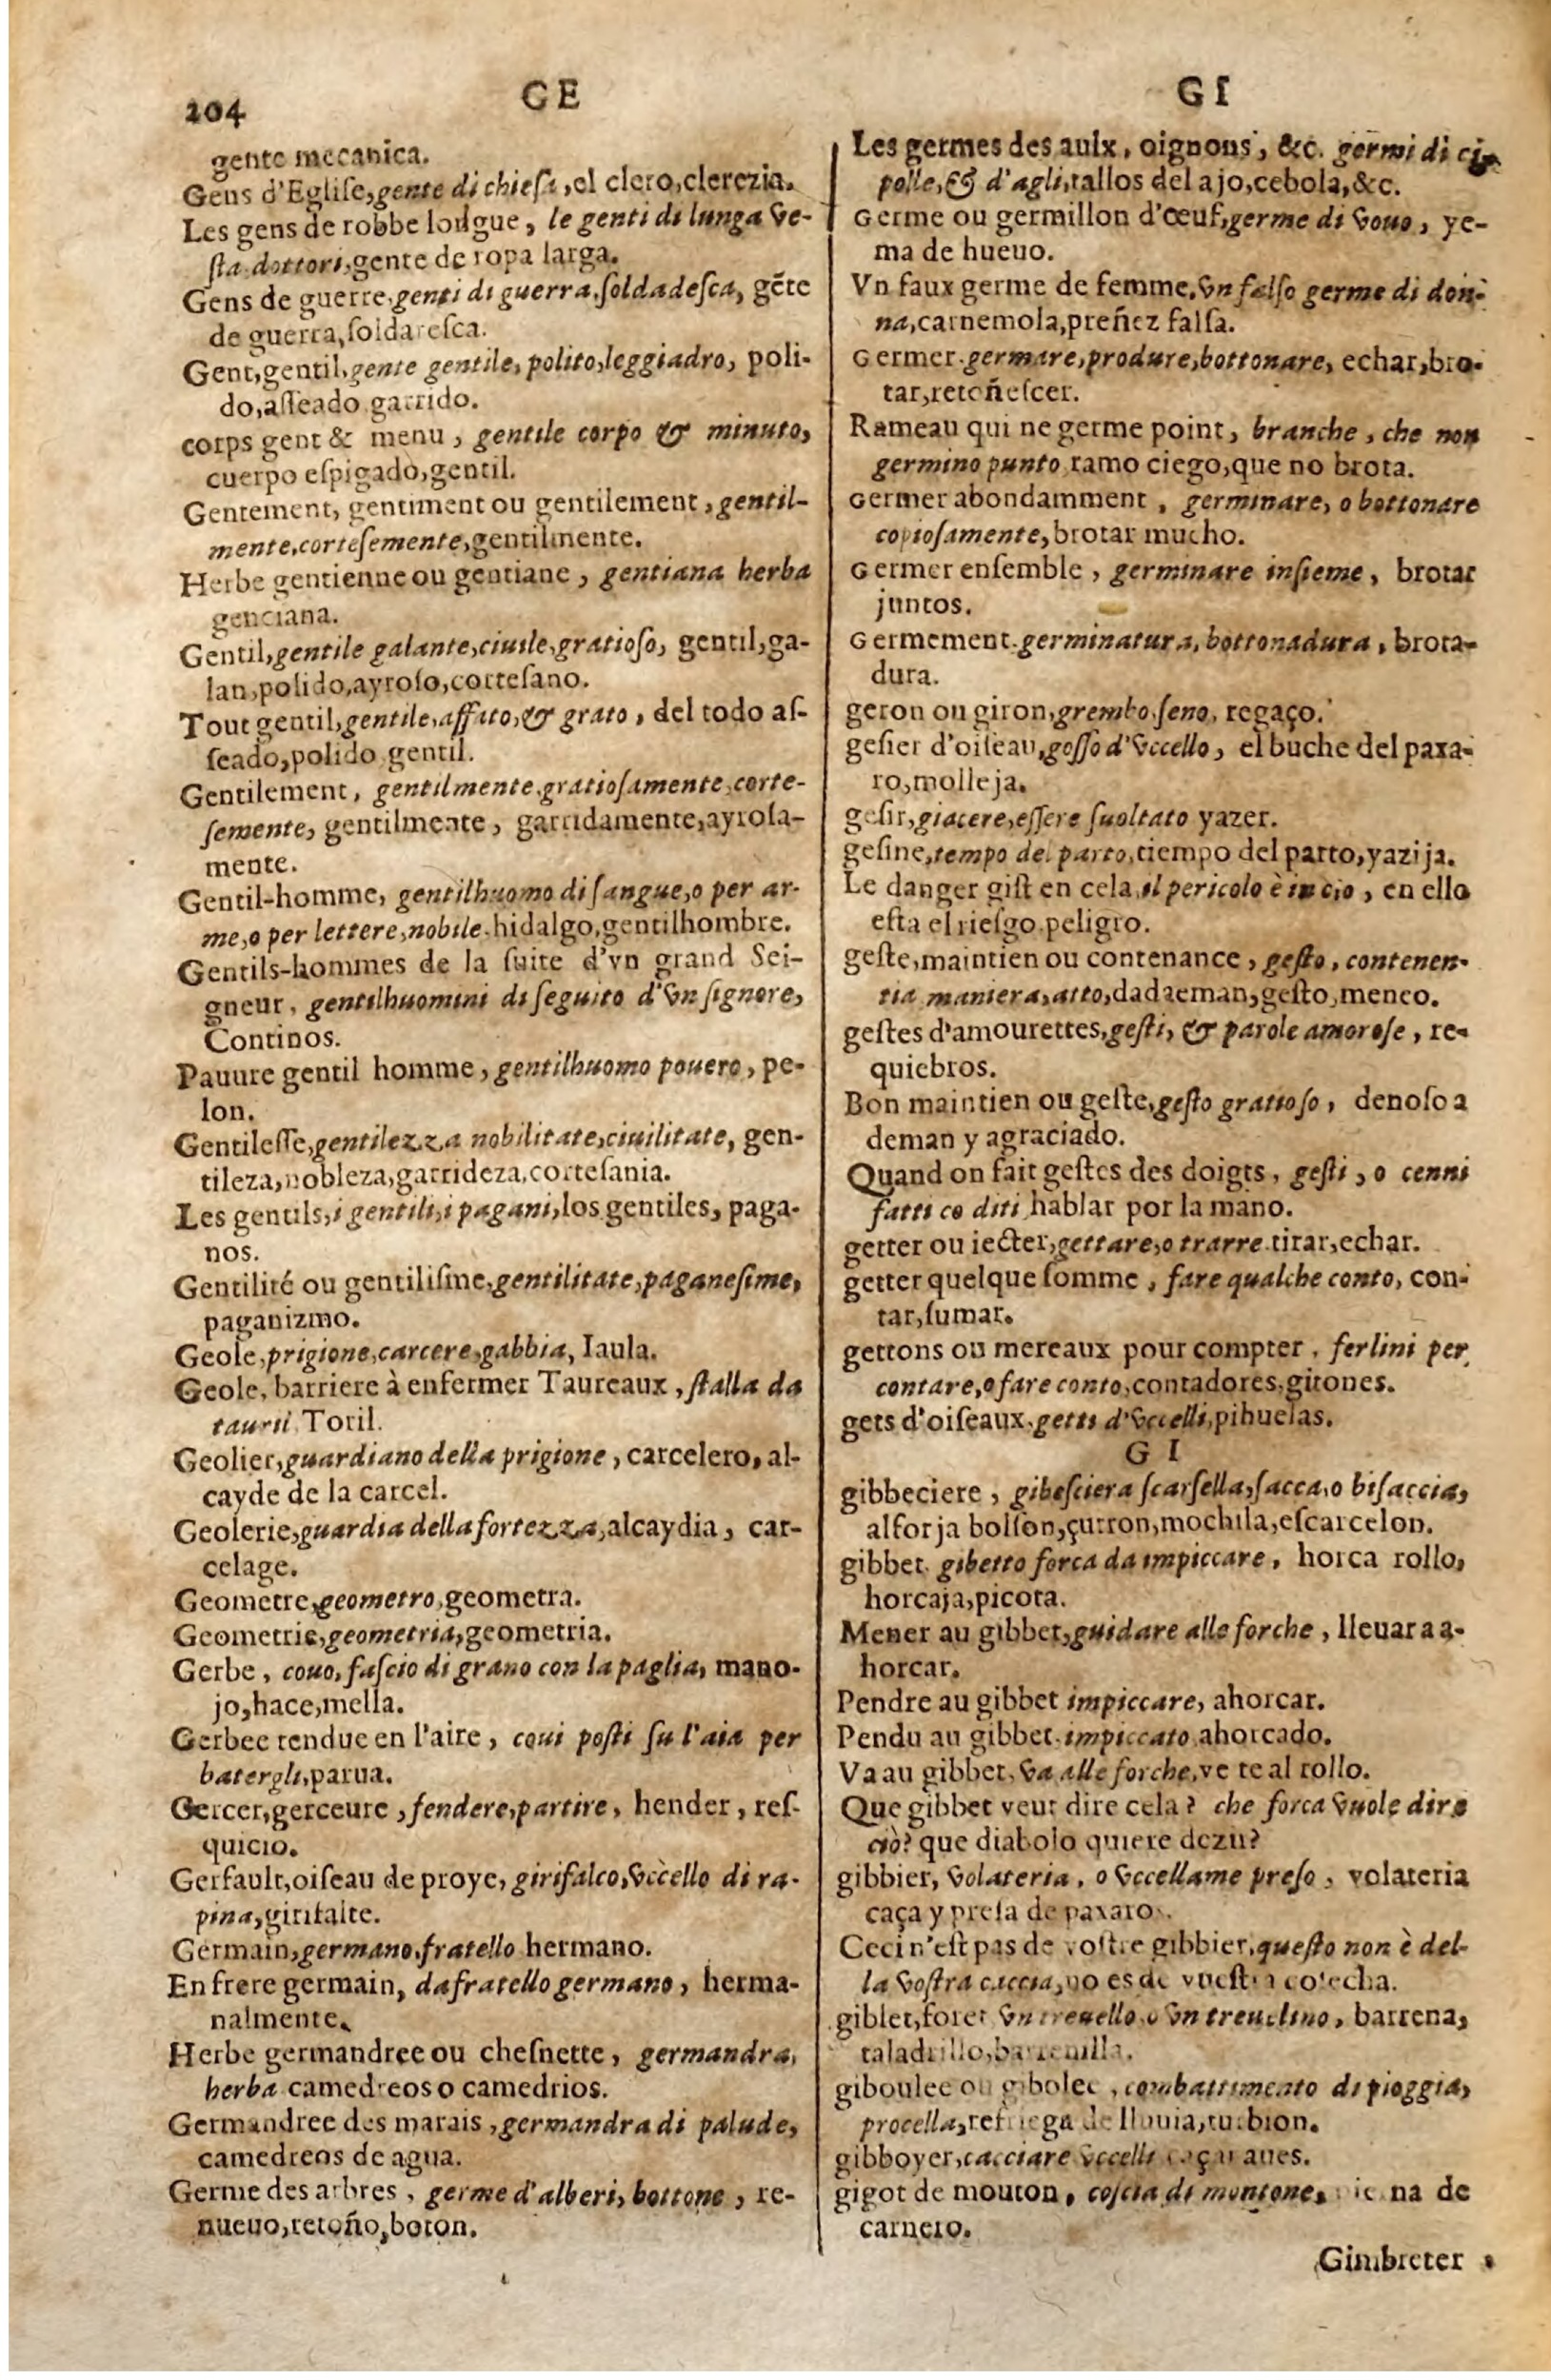 204
GE
GI
gente mecanica.
Gens d'Egliſe, gente di chieſa, el clero, clerezia.
Les gens de robbe longue, le genti di lunga ve-
ſta dottori, gente de ropa larga.
Gens de guerre, genti di guerra, ſoldadeſca, gẽte
de guerra, ſoldareſca.
Gent, gentil, gente gentile, polito, leggiadro, poli-
do, aſſeado garrido.
corps gent & menu, gentile corpo & minuto,
cuerpo eſpigado, gentil.
Gentement, gentiment ou gentilement, gentil-
mente, corteſemente, gentilmente.
Herbe gentienne ou gentiane, gentiana herba
genciana.
Gentil, gentile galante, ciuile, gratioſo, gentil, ga-
lan, polido, ayroſo, corteſano.
Tout gentil, gentile, affato, & grato, del todo aſ-
ſeado, polido gentil.
Gentilement, gentilmente, gratioſamente, corte-
ſemente, gentilmente, garridamente, ayroſa-
mente.
Gentil-homme, gentilhuomo di ſangue, o per ar-
me, o per lettere, nobile. hidalgo, gentilhombre.
Gentils-hommes de la ſuite d'vn grand Sei-
gneur, gentilhuomini di ſeguito d'vn ſignore,
Continos.
Pauure gentil homme, gentilhuomo pouero, pe-
lon.
Gentileſſe, gentilezza nobilitate, ciuilitate, gen-
tileza, nobleza, garrideza, corteſania.
Les gentils, i gentili, i pagani, los gentiles, paga-
nos.
Gentilité ou gentiliſme, gentilitate, paganeſime,
paganizmo.
Geole, prigione, carcere, gabbia, Iaula.
Geole, barriere à enfermer Taureaux, ſtalla da
taurii Toril.
Geolier, guardiano della prigione, carcelero, al-
cayde de la carcel.
Geolerie, guardia della fortezza, alcaydia, car-
celage.
Geometre, geometro, geometra.
Geometrie, geometria, geometria.
Gerbe, couo, faſcio di grano con la paglia, mano-
jo, hace, mella.
Gerbee tendue en l'aire, coui poſti ſu l'aia per
batergli, parua.
Gercer, gerceure, fendere, partire, hender, reſ-
quicio.
Gerfault, oiſeau de proye, girifalco, vccello di ra-
pina, girifalte.
Germain, germano, fratello hermano.
En frere germain, da fratello germano, herma-
nalmente.
Herbe germandree ou cheſnette, germandra,
herba camedreos o camedrios.
Germandree des marais, germandra di palude,
camedreos de agua.
Germe des arbres, germe d'alberi, bottone, re-
nueuo, retoño, boton.
Les germes des aulx, oignons, &c. germi di ci-
polle, & d'agli, tallos del ajo, cebola, &c.
Germe ou germillon d'œuf, germe di vouo, ye-
ma de hueuo.
Vn faux germe de femme, vn falſo germe di don-
na, carnemola, preñez falſa.
Germer. germare, produre, bottonare, echar, bro-
tar, retoñeſcer.
Rameau qui ne germe point, branche, che non
germino punto ramo ciego, que no brota.
Germer abondamment, germinare, o bottonare
copioſamente, brotar mucho.
Germer enſemble, germinare inſieme, brotar
juntos.
Germement. germinatura, bottonadura, brota-
dura.
geron ou giron, grembo, ſeno, regaço.
geſier d'oiſeau, goſſo d'vccello, el buche del paxa-
ro, molleja.
geſir, giacere, eſſere ſuoltato yazer.
geſine, tempo del parto, tiempo del parto, yazija.
Le danger giſt en cela, il pericolo è in cio, en ello
eſta el rieſgo, peligro.
geſte, maintien ou contenance, geſto, contenen-
tia maniera, atto, dadaeman, geſto, meneo.
geſtes d'amourettes, geſti, & parole amoroſe, re-
quiebros.
Bon maintien ou geſte, geſto gratioſo, denoſo a
deman y agraciado.
Quand on fait geſtes des doigts, geſti, o cenni
fatti co diti, hablar por la mano.
getter ou iecter, gettare, o trarre. tirar, echar.
getter quelque ſomme, fare qualche conto, con-
tar, ſumar.
gettons ou mereaux pour compter, ferlini per
contare, o fare conto, contadores, gitones.
gets d'oiſeaux. getti d'vccelli, pihuelas.
G I
gibbeciere, gibeſciera ſcarſella, ſacca, o biſaccia,
alforja bolſon, çurron, mochila, eſcarcelon.
gibbet. gibetto forca da impiccare, horca rollo,
horcaja, picota.
Mener au gibbet, guidare alle forche, lleuar a a-
horcar.
Pendre au gibbet impiccare, ahorcar.
Pendu au gibbet. impiccato ahorcado.
Va au gibbet, va alle forche, ve te al rollo.
Que gibbet veut dire cela? che forca vuole dire
ciò? que diabolo quiere dezir?
gibbier, volateria, o vccellame preſo, volateria
caça y preſa de paxaros.
Ceci n'eſt pas de voſtre gibbier, queſto non è del-
la voſtra caccia, no es de vueſtra coſecha.
giblet, foret vn treuello, o vn treuelino, barrena,
taladrillo, barrenilla.
giboulee ou gibolee, combattimento di pioggia,
procella, refriega de lluuia, turbion.
gibboyer, cacciare vccelli caçar aues.
gigot de mouton, coſcia di montone, pierna de
carnero.
Gimbreter